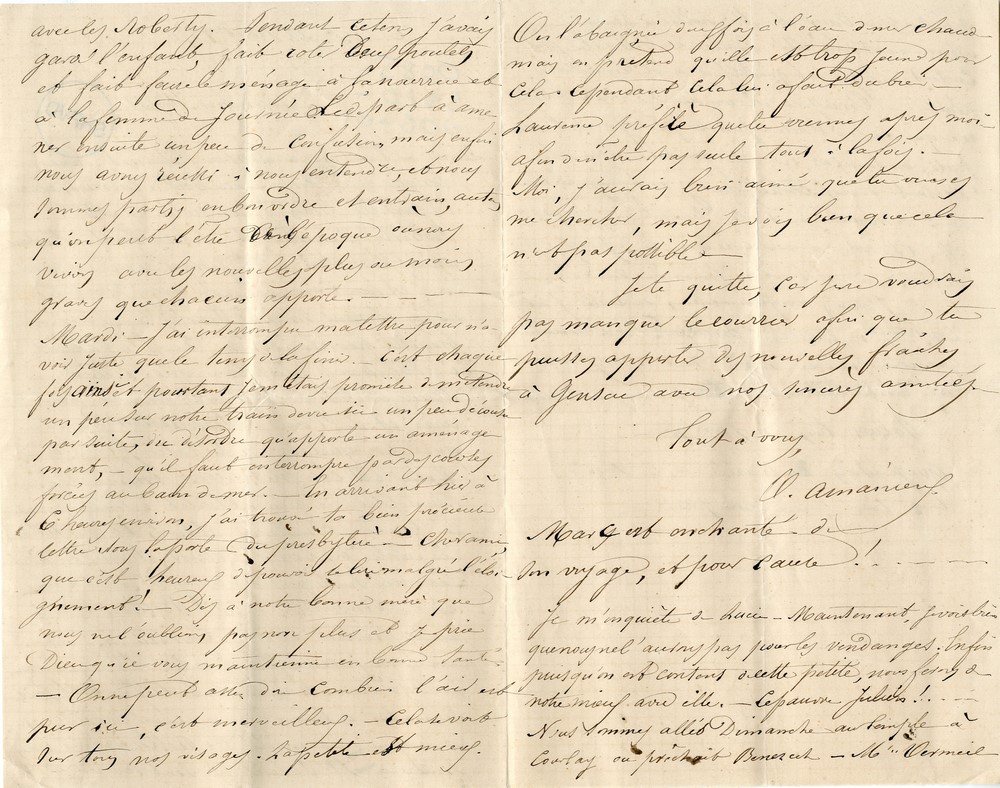 avec les Roberty. Pendant ce tems, j'avais
gardé l'enfant, fait rotir Deux poulets
et fait faire le ménage à la nourrice et
à la femme de Journée. Le départ à ame-
ner ensuite un peu de confusion, mais enfin
nous avons réussi à nous entendre, et nous
sommes partis en bon ordre et entrain, autant
qu'on peut l'être à l'époque où nous
vivons avec les nouvelles plus ou moins
graves que chacun apporte. — — —
Mardi — J'ai interrompu ma lettre pour n'a-
voir juste que le tems de la finir. C'est chaque
fois ainsi et pourtant je m'étais promise de m'étendre
un peu sur notre train de vie ici un peu décousu
par suite, du désordre qu'apporte un aménage
ment, — qu'il faut interrompre par des courses
forcées au bain de mer. — En arrivant hier à
6 heures environ, j'ai trouvé ta bien précieuse
lettre sous la porte du presbytère — Chère amie,
que c'est heureux de pouvoir se lire malgré l'éloi-
gnement! — Dis à notre bonne mère que
nous ne l'oublions pas non plus et je prie
Dieu qu'il vous maintienne en bonne santé.
— On ne peut assez dire combien l'air est
pur ici, c'est merveilleux. — Cela se voit
sur tous nos visages. La petite est mieux.
On l'a baignée deux fois à l'eau de mer chaude
mais on prétend qu'elle est trop jeune pour
cela. Cependant cela lui a fait du bien —
Laurence préfère que tu viennes après moi
afin de n'être pas seule tout à la fois. —
Moi, j'aurais bien aimé que tu vinsses
me chercher, mais je vois bien que cela
n'est pas possible —
Je te quitte, car je ne voudrais
pas manquer le courrier afin que tu
puisses apporter des nouvelles fraîches
à Gensac avec nos sincères amitiés.
Tout à vous,
O. Amanieux
Marc est enchanté de
son voyage, et pour cause! . — — —
Je m'inquiète de Lucie — Maintenant, je vois bien
que nous ne l'aurons pas pour les vendanges. Enfin
puisqu'on est content de cette petite, nous ferons de
notre mieux avec elle. — Le pauvre Julien! . — —
Nous sommes allés Dimanche au temple à
Courlay où prêchait Benezech — Mme Vermeil